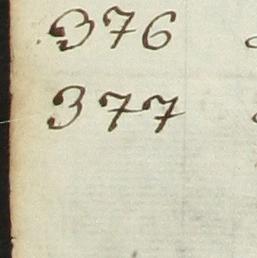 376
377